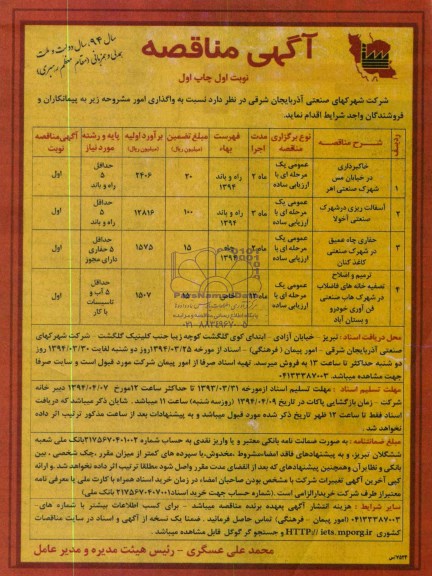 سال ۹۴، سال دولت و ملت
همدلی و همزبانی (مقام معظم رهبری)
آگهی مناقصه
نوبت اول چاپ اول
شرکت شهرکهای صنعتی آذربایجان شرقی در نظر دارد نسبت به واگذاری امور مشروحه زیر به پیمانکاران و
فروشندگان واجد شرایط اقدام نماید.
ردیف شرح مناقصه نوع برگزاری مناقصه مدت اجرا فهرست بهاء مبلغ تضمین (میلیون ریال) برآورد اولیه (میلیون ریال) پایه و رشته مورد نیاز آگهی مناقصه نوبت
۱ خاکبرداری در خیابان مس شهرک صنعتی اهر عمومی یک مرحله ای با ارزیابی ساده ۲ ماه راه و باند ۱۳۹۴ ۲۰ ۲۴۰۶ حداقل ۵ راه و باند اول
۲ آسفالت ریزی درشهرک صنعتی آخولا عمومی یک مرحله ای با ارزیابی ساده ۳ ماه راه و باند ۱۳۹۴ ۱۰۰ ۱۲۸۱۶ حداقل ۵ راه و باند اول
۳ حفاری چاه عمیق در شهرک صنعتی کاغذ کنان عمومی یک مرحله ای با ارزیابی ساده ماه ۱۳۹۴ ۱۵ ۱۵۷۵ حداقل ۵ حفاری دارای مجوز اول
۴ ترمیم و اصلاح تصفیه خانه های فاضلاب در شهرک هاب صنعتی فن آوری خودرو و بستان آباد عمومی یک مرحله ای با ارزیابی ساده ماه ۱۵ ۱۵۰۷ حداقل ۵ آب و تاسیسات با کار اول
۰۲۱-۸۸۳۴۹۶۷۰-۵
محل دریافت اسناد : تبریز - خیابان آزادی - ابتدای کوی گلگشت کوچه زیبا جنب کلینیک گلگشت - شرکت شهرکهای
صنعتی آذربایجان شرقی - امور پیمان ( فرهنگی) - اسناد از مورخه ۱۳۹۴/۰۳/۲۵ روز دو شنبه لغایت ۱۳۹۴/۰۳/۳۰ روز
دو شنبه حداکثر تا ساعت ۱۳ به فروش میرسد. تهیه اسناد صرفا از امور پیمان شرکت مورد قبول است و سایت صرفا
جهت مشاهده میباشد. ۰۴۱۳۳۳۸۷۰۰۳
مهلت تسلیم اسناد : مهلت تسلیم اسناد ازمورخه ۱۳۹۳/۰۳/۳۱ تا حداکثر ساعت ۱۲ مورخ ۱۳۹۴/۰۴/۰۷ دبیر خانه
شرکت - زمان بازگشایی پاکات در تاریخ ۱۳۹۴/۰۴/۰۹ (روزسه شنبه) ساعت ۱۱ میباشد. شایان ذکر میباشد که دریافت
اسناد فقط تا ساعت ۱۲ ظهر تاریخ ذکر شده مورد قبول میباشد و به پیشنهادات بعد از ساعت مذکور ترتیب اثر داده
نخواهد شد.
مبلغ ضمانتنامه : به صورت ضمانت نامه بانکی معتبر و یا واریز نقدی به حساب شماره ۲۱۷۵۶۷۰۴۰۱۰۰۲ بانک ملی شعبه
ششگلان تبریز، و به پیشنهادهای فاقد امضاء،مشروط ،مخدوش،یا سپرده های کمتر از میزان مقرر ،چک شخصی ، بین
بانکی و نظایر آن وهمچنین پیشنهادهای که بعد از انقضای مدت مقرر واصل شود مطلقا ترتیب اثر داده نخواهد شد. و ارائه
کپی آخرین آگهی تغییرات شرکت با مشخص بودن صاحبان امضاء در زمان خرید اسناد همراه با کارت ملی یا معرفی نامه
معتبراز طرف شرکت خریدارالزامی است .(شماره حساب جهت خرید اسناد ۲۱۷۵۶۷۰۴۰۷۰۰۱ بانک ملی)
سایر شرایط : هزینه انتشار آگهی بعهده برنده مناقصه میباشد - برای کسب اطلاعات بیشتر با شماره های-
۰۴۱۳۳۳۸۷۰۰۳ (امور پیمان - فرهنگی) تماس حاصل فرمائید . ضمنا یک نسخه از آگهی و اسناد در سایت مناقصات
کشوری HTTP:// iets.mporg.ir و جستجو گر گوگل قابل مشاهده میباشد.
محمد علی عسگری - رئیس هیئت مدیره و مدیر عامل